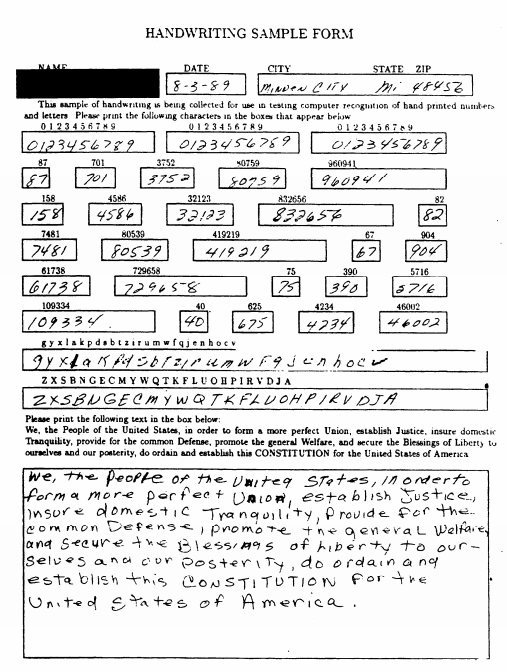 HANDWRITING SAMPLE FORM
NAME DATE CITY STATE ZIP
8-3-89 MINDEN CITY Mi 48456
This sample of handwriting is being collected for use in testing computer recognition of hand printed numbers
and letters Please print the following characters in the boxes that appear below
0 1 2 3 4 5 6 7 8 9 0 1 2 3 4 5 6 7 8 9 0 1 2 3 4 5 6 7 8 9
0123456789 0123456789 0123456789
87 701 3752 80759 960941
87 701 3752 80759 960941
158 4586 32123 832656 82
158 4586 32123 832656 82
7481 80539 419219 67 904
7481 80539 419219 67 904
61738 729658 75 390 5716
61738 729658 75 390 5716
109334 40 625 4234 46002
109334 40 675 4234 46002
g y x l a k p d s b t z i r u m w f q j e n h o c v
g y x l a k p d s b t z i r u m w F q j e n h o c v
Z X S B N G E C M Y W Q T K F L U O H P I R V D J A
Z X S B N G E C M Y W Q T K F L U O H P I R V D J A
Please print the following text in the box below:
We, the People of the United States, in order to form a more perfect Union, establish Justice, insure domestic
Tranquility, provide for the common Defense, promote the general Welfare, and secure the Blessings of Liberty to
ourselves and our posterity, do ordain and establish this CONSTITUTION for the United States of America
We, the People of the United States, in order to
form a more perfect Union, establish Justice,
insure domestic Tranquility, Provide For the
common Defense, promote the general Welfare,
and secure the Blessings of Liberty to our-
selves and our posterity, do ordain and
establish this CONSTITUTION For the
United States of America.